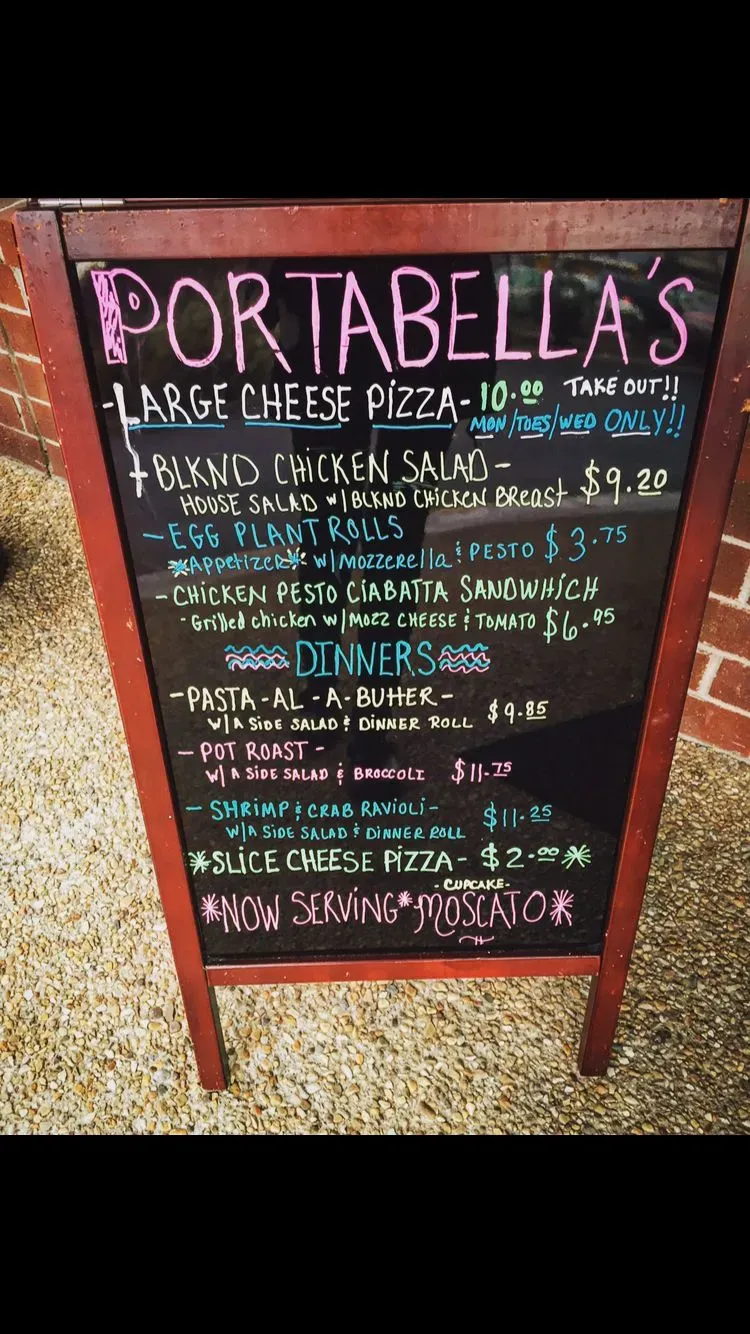 PORTABELLA'S
-LARGE CHEESE PIZZA- 10.00 TAKE OUT!!
MON/TUES/WED ONLY!!
-BLKND CHICKEN SALAD-
HOUSE SALAD W/BLKND CHICKEN BREAST $9.20
-EGG PLANT ROLLS
*Appetizer* W/MOZZERELLA & PESTO $3.75
-CHICKEN PESTO CIABATTA SANDWHICH
-Grilled chicken W/MOZZ CHEESE & TOMATO $6.95
DINNERS
-PASTA-AL-A-BUTTER-
W/A SIDE SALAD & DINNER ROLL $9.85
-POT ROAST-
W/A SIDE SALAD & BROCCOLI $11.75
-SHRIMP & CRAB RAVIOLI-
W/A SIDE SALAD & DINNER ROLL $11.25
*SLICE CHEESE PIZZA- $2.00*
-CUPCAKE-
*NOW SERVING*MOSCATO*